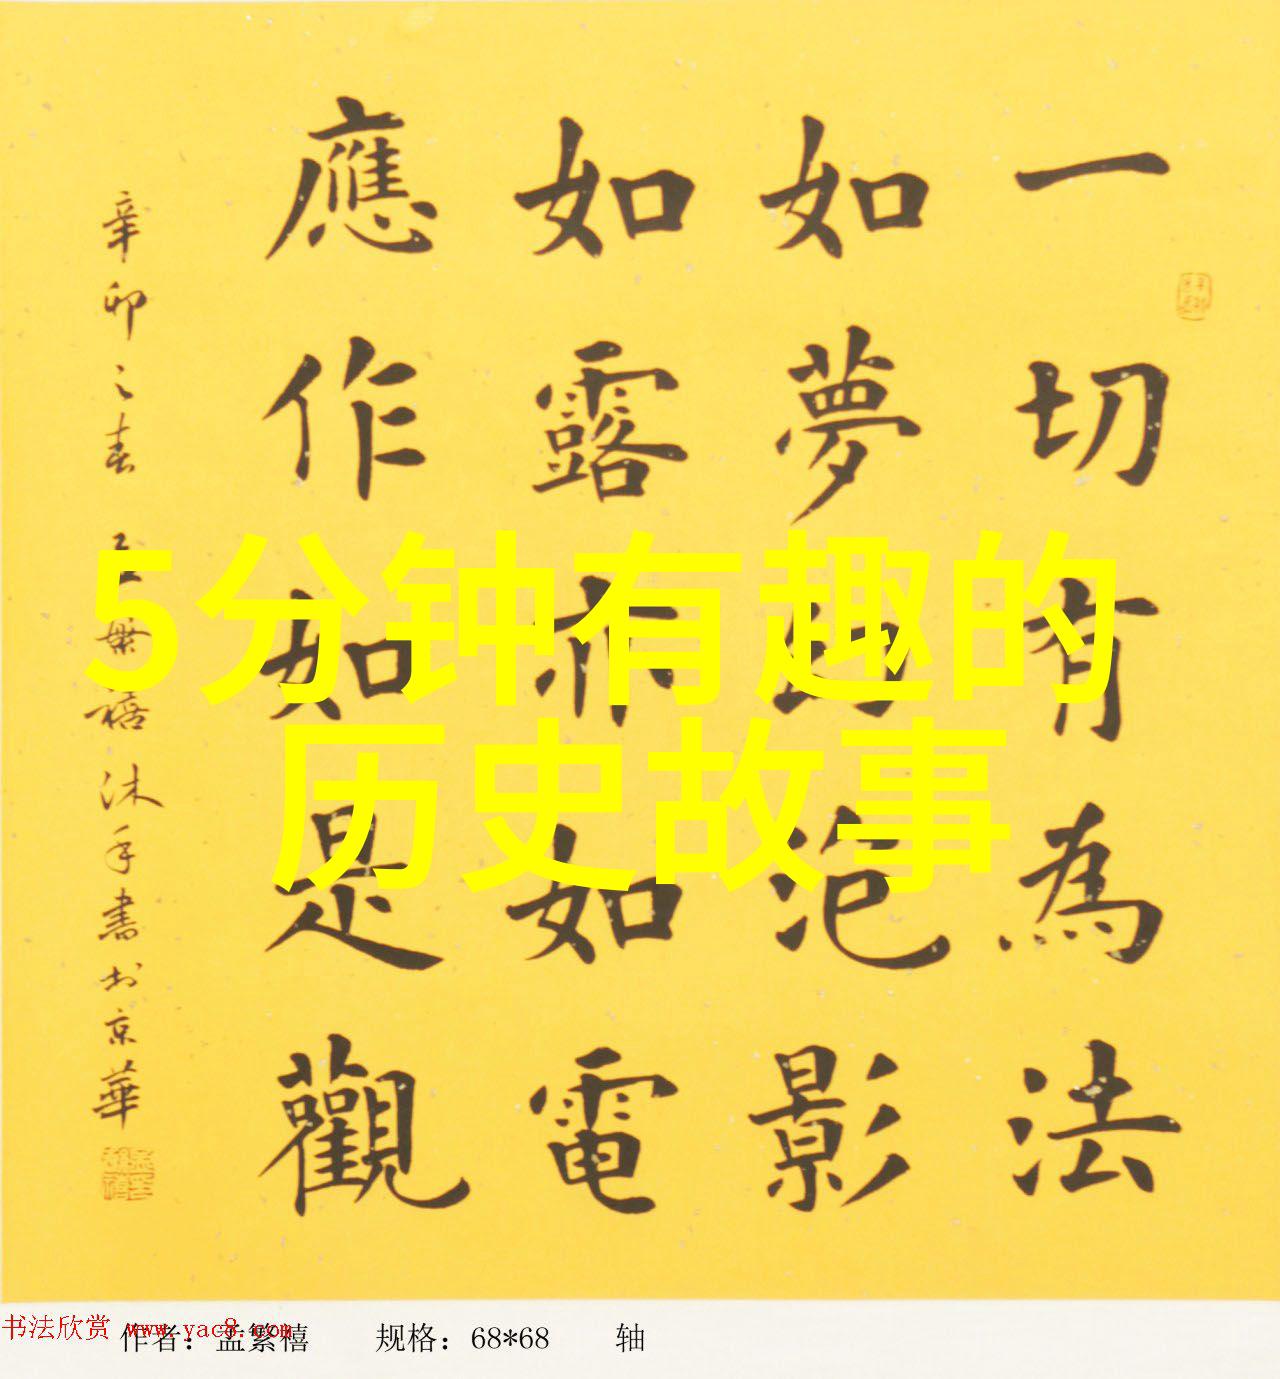 一切有為法
如夢幻泡影
如露亦如電
應作如是觀
辛卯之春 孟繁禧沐手書於京華
5分钟有趣的
历史故事
书法欣赏 www.yac8.com
作者：孟繁禧 规格：68*68 轴